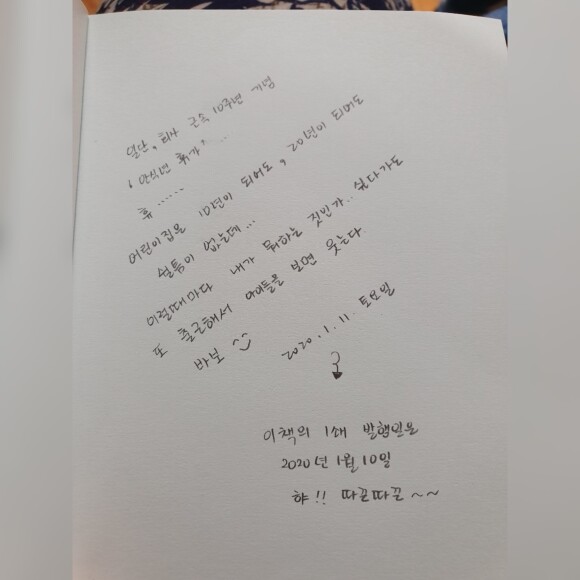 일단, 회사 근속 10주년 기념
'안식년 휴가' ...
흠 ......
어린이집은 10년이 되어도, 20년이 되어도
쉴틈이 없는데...
이럴때마다 내가 뭐하는 짓인가.. 싶다가도
또 출근해서 아이들을 보면 웃는다.
바보 ^^
2020. 1. 11. 토요일
이책의 1쇄 발행일은
2020년 1월 10일
햐!! 따끈따끈~~